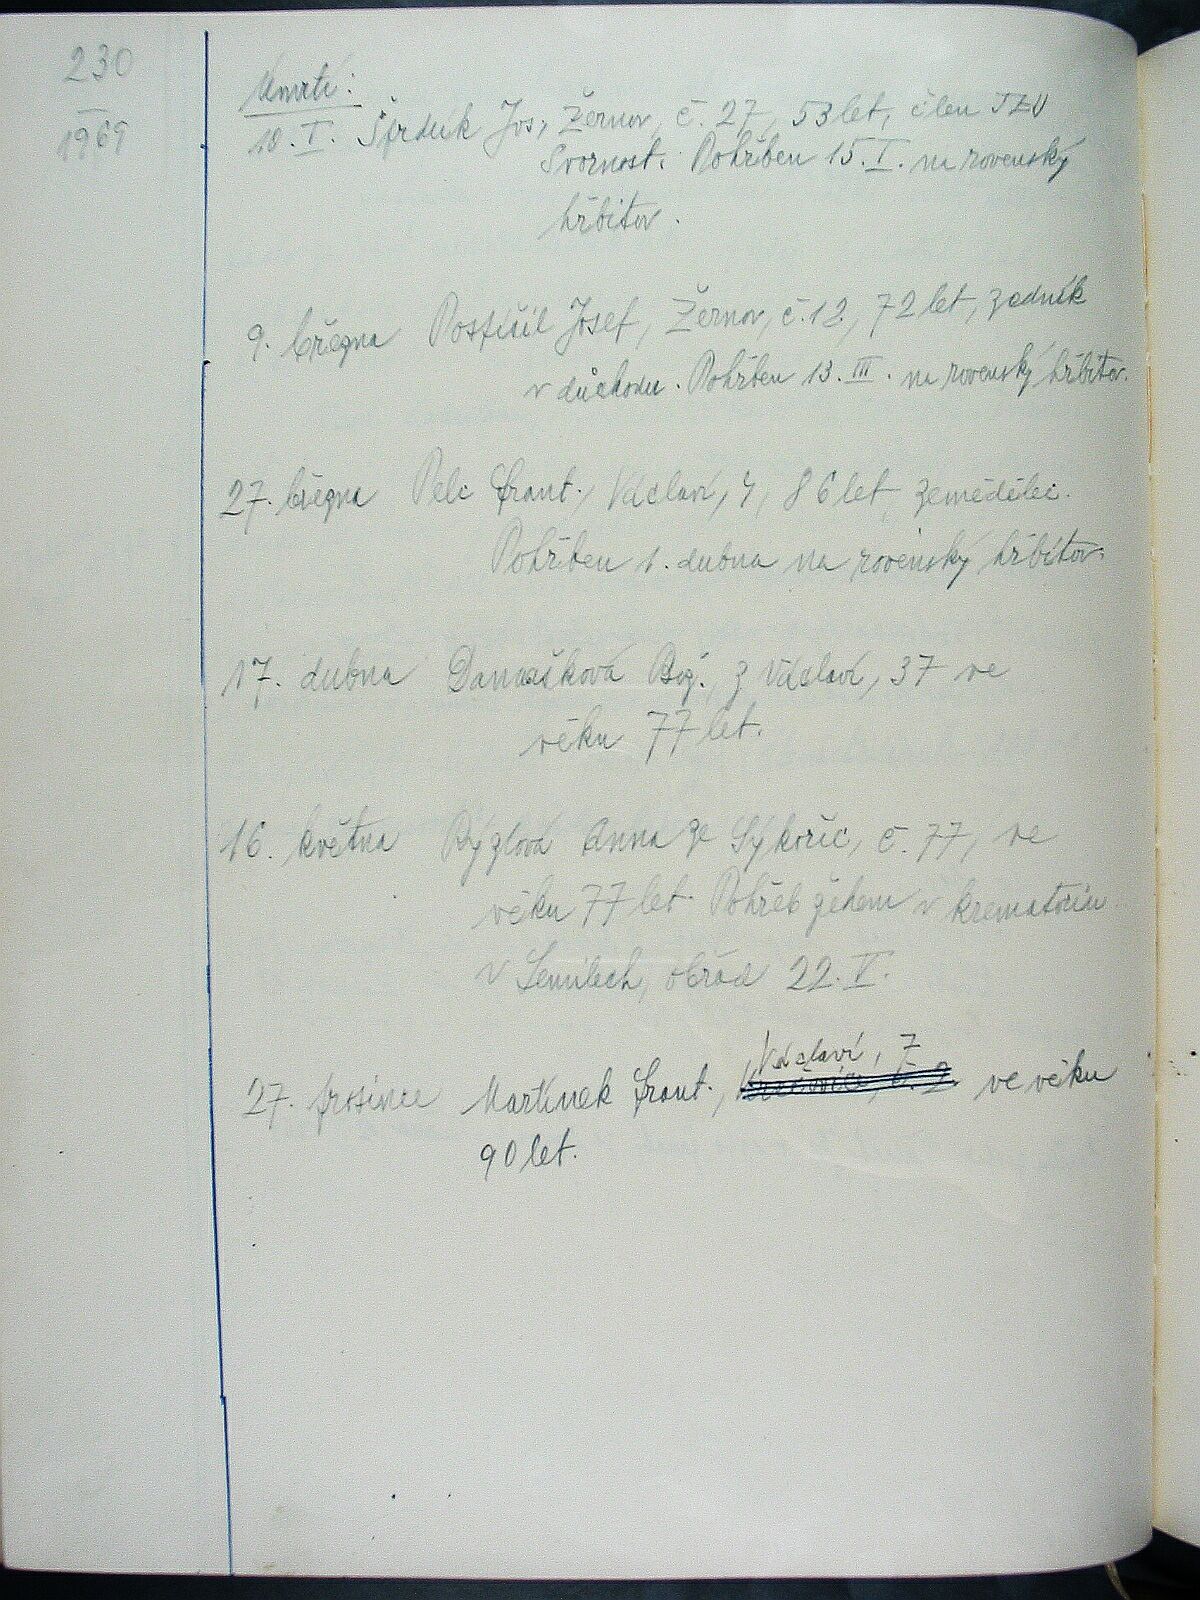 230
1969
Úmrtí:
10. I. Šprduk Jos., Žernov, č. 27, 53 let, člen JZD
Svornost. Pohřben 15. I. na rovenský
hřbitov.
9. března Pospíšil Josef, Žernov, č. 12, 72 let, zedník
v důchodu. Pohřben 13. III. na rovenský hřbitov.
27. března Pelc Frant. Václaví, 4, 86 let, zemědělec.
Pohřben 1. dubna na rovenský hřbitov.
17. dubna Damašková Bož., z Václaví, 37 ve
věku 77 let.
16. května Rýzlová Anna ze Sýkořic, č. 77, ve
věku 77 let. Pohřeb žehem v krematoriu
v Semilech, obřad 22. V.
Václaví, 7
27. prosince Martínek Frant., č. 2. ve věku
90 let.